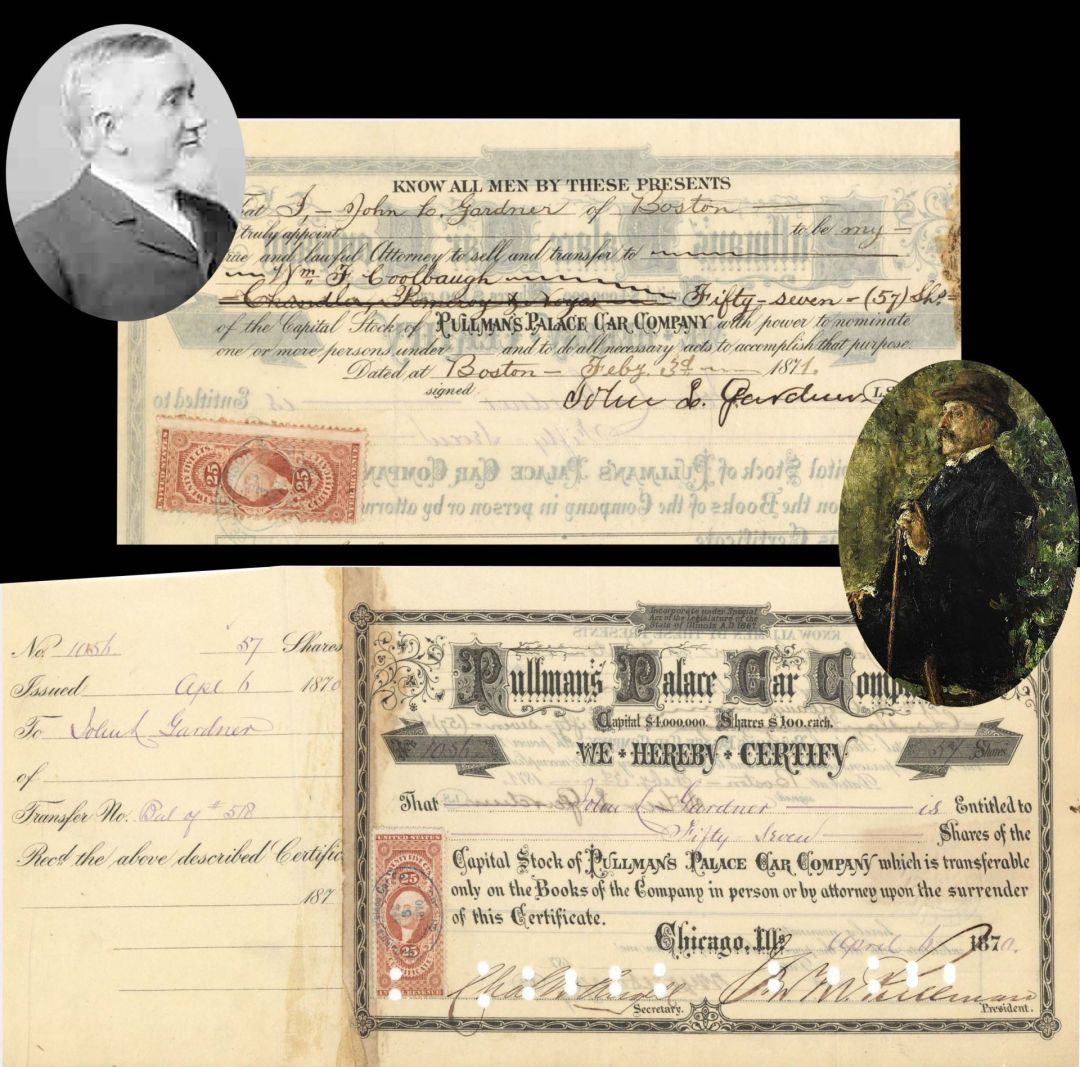 KNOW ALL MEN BY THESE PRESENTS
That I, John L. Gardner of Boston
truly appoint to be my
true and lawful Attorney to sell and transfer to
Wm F Coolbaugh
Chandler Pomroy & Noyes Fifty-seven = (57) Shs
of the Capital Stock of PULLMAN'S PALACE CAR COMPANY with power to nominate
one or more persons under and to do all necessary acts to accomplish that purpose.
Dated at Boston - Feby 3d 1871.
signed John L. Gardner L.S
UNITED STATES
25 25
INTER. REVENUE
No. 1056 57 Shares
Issued Apl 6 1870
To John L Gardner
of
Transfer No. Bal of # 518
Recd the above described Certific
187
Incorporate under Special
Act of the Legislature of the
State of Illinois A.D 1867.
Pullman's Palace Car Comp
Capital $4,000,000. Shares $100. each.
No. 1056 WE HEREBY CERTIFY 57 Shares
That John L Gardner is Entitled to
Fifty Seven Shares of the
Capital Stock of PULLMAN'S PALACE CAR COMPANY which is transferable
only on the Books of the Company in person or by attorney upon the surrender
of this Certificate.
Chicago, Ills April 6 1870.
UNITED STATES
25
25
INTER. REVENUE
Secretary.
Geo M Pullman
President.